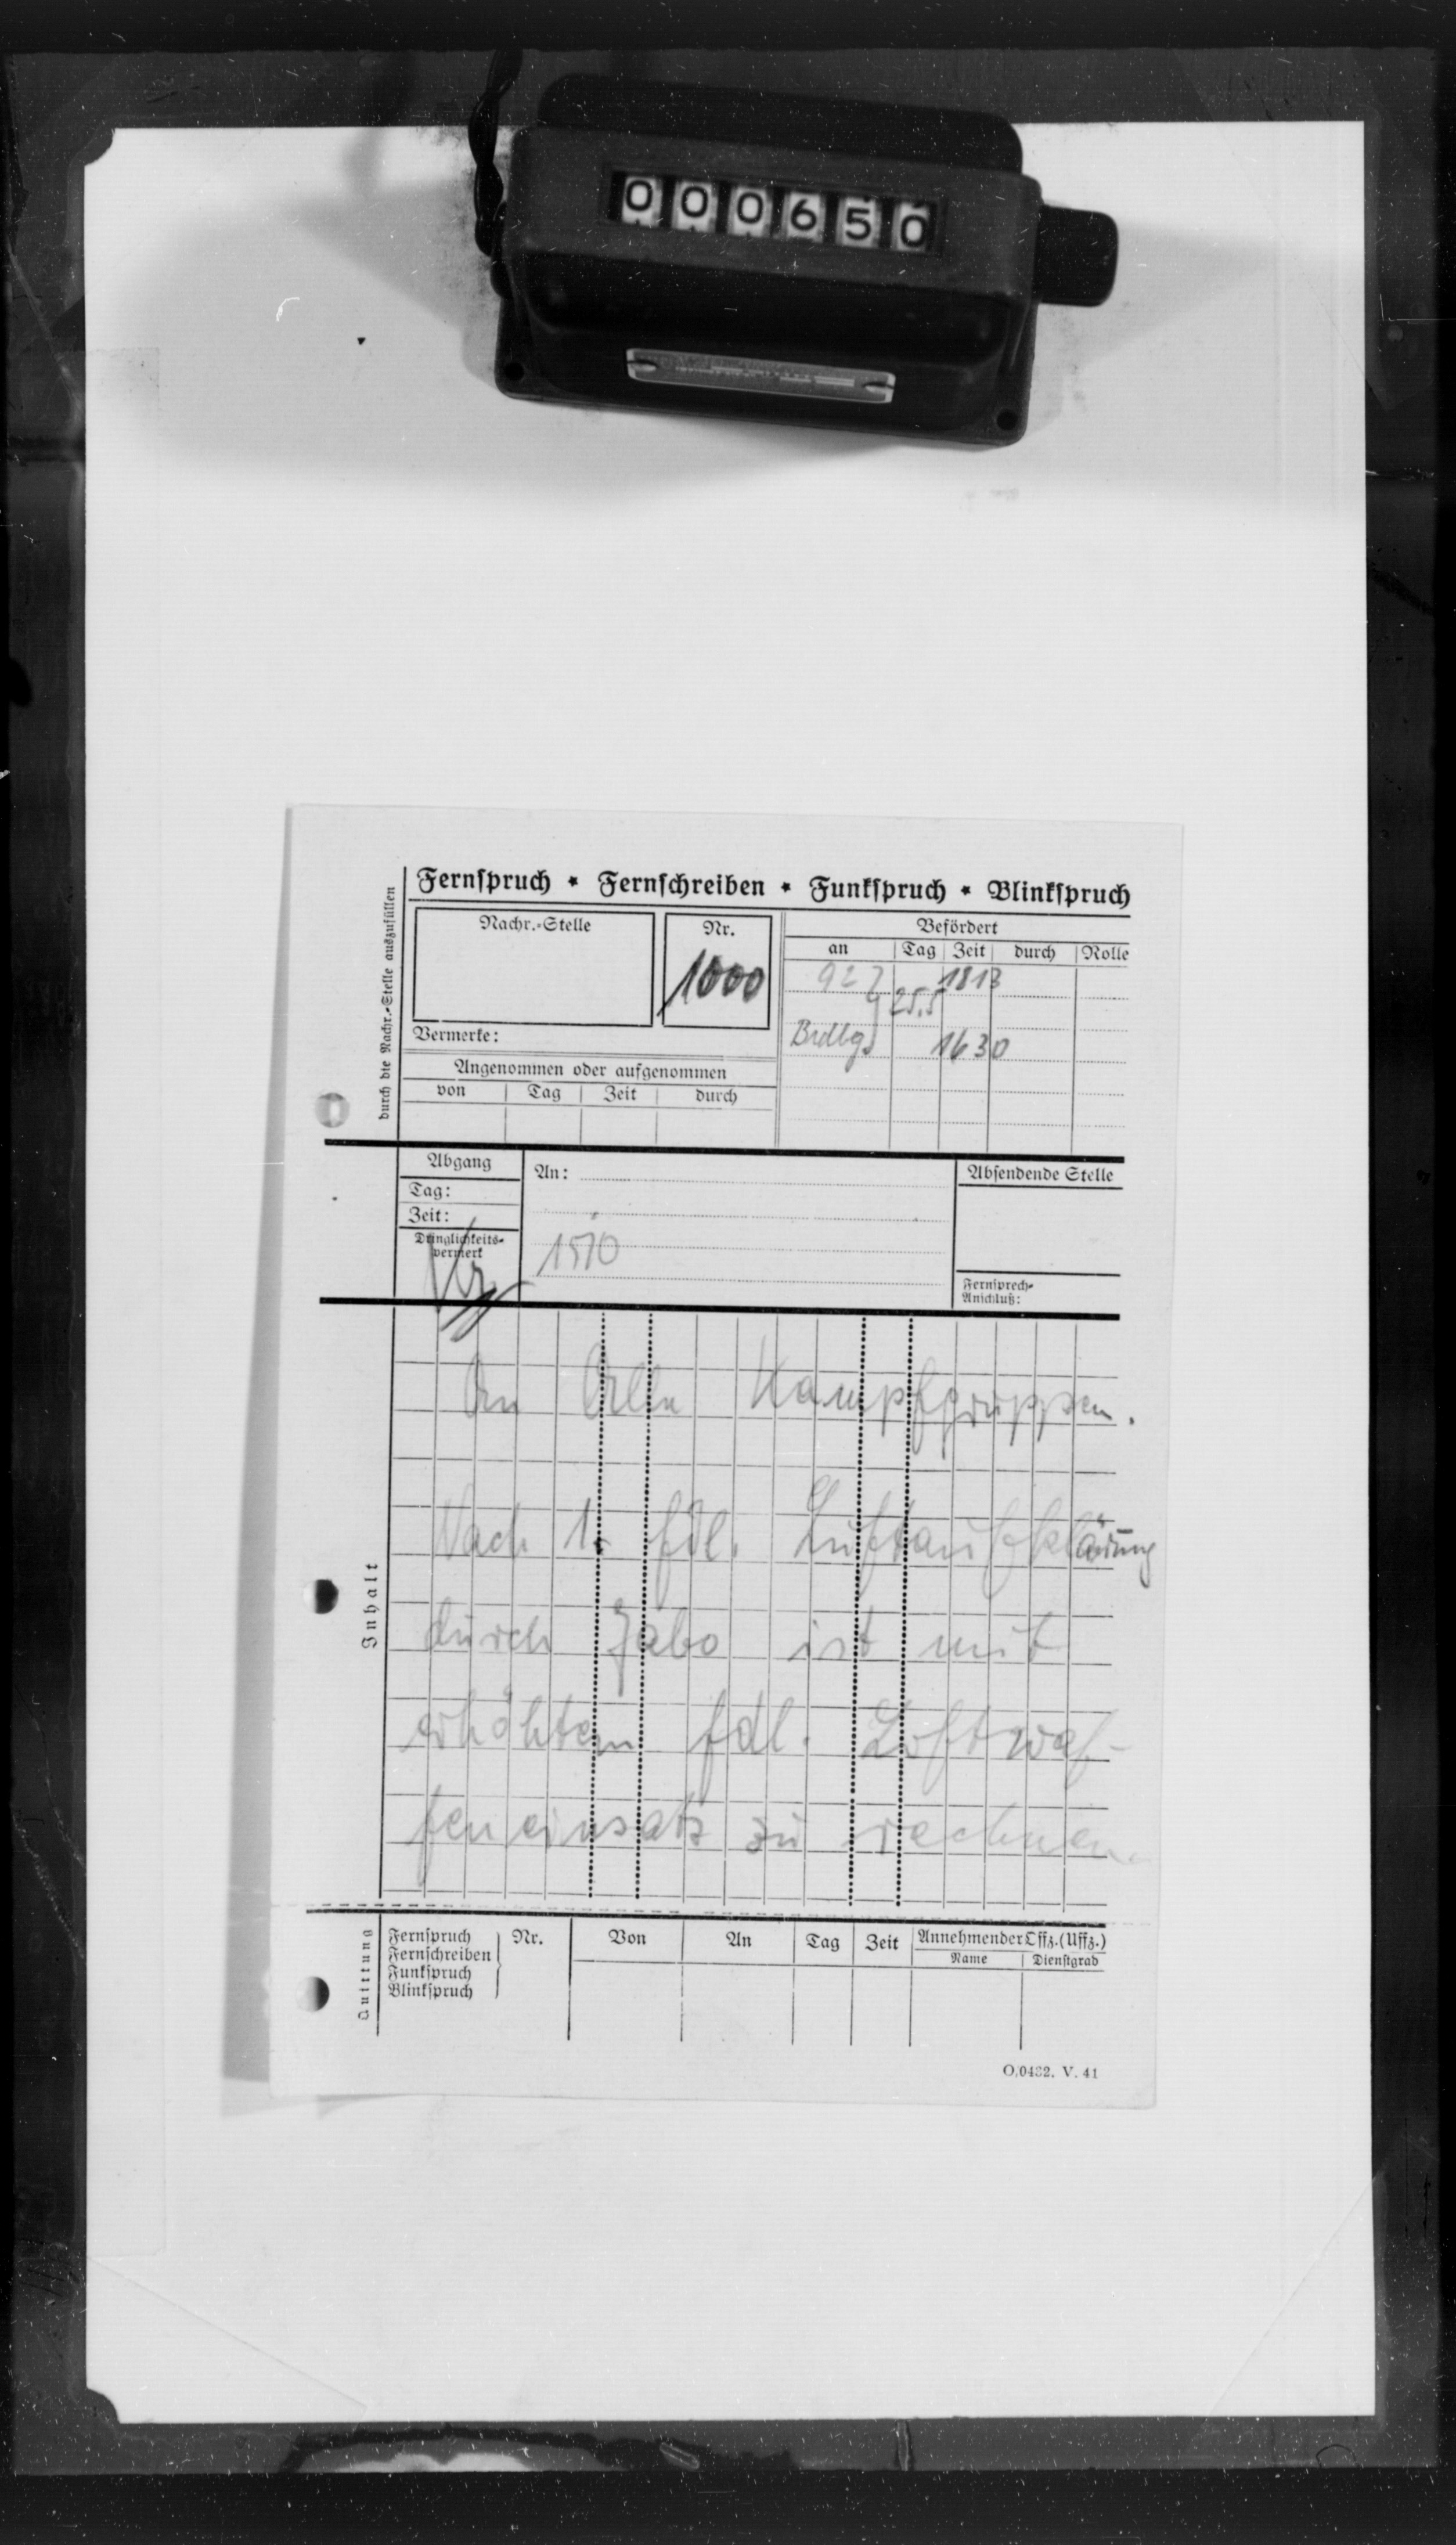 000650
Fernspruch * Fernschreiben * Funkspruch * Blinkspruch
durch die Nachr.-Stelle auszufüllen
Nachr.-Stelle
Nr.
1000
Befördert
an Tag Zeit durch Rolle
927 1813
25.5
Brdbg. 1630
Vermerke:
Angenommen oder aufgenommen
von Tag Zeit durch
Abgang
Tag:
Zeit:
Dringlichkeits-
vermerk
An:
1510
Absendende Stelle
Fernsprech-
Anschluß:
Inhalt
An Alle Kampfgruppen.
Nach 1. fdl. Luftaufklärung
durch Jabo ist mit
erhöhtem fdl. Luftwaf-
feneinsatz zu rechnen.
Quittung
Fernspruch
Fernschreiben
Funkspruch
Blinkspruch
Nr. Von An Tag Zeit Annehmender Offz. (Uffz.)
Name Dienstgrad
O.0482. V. 41